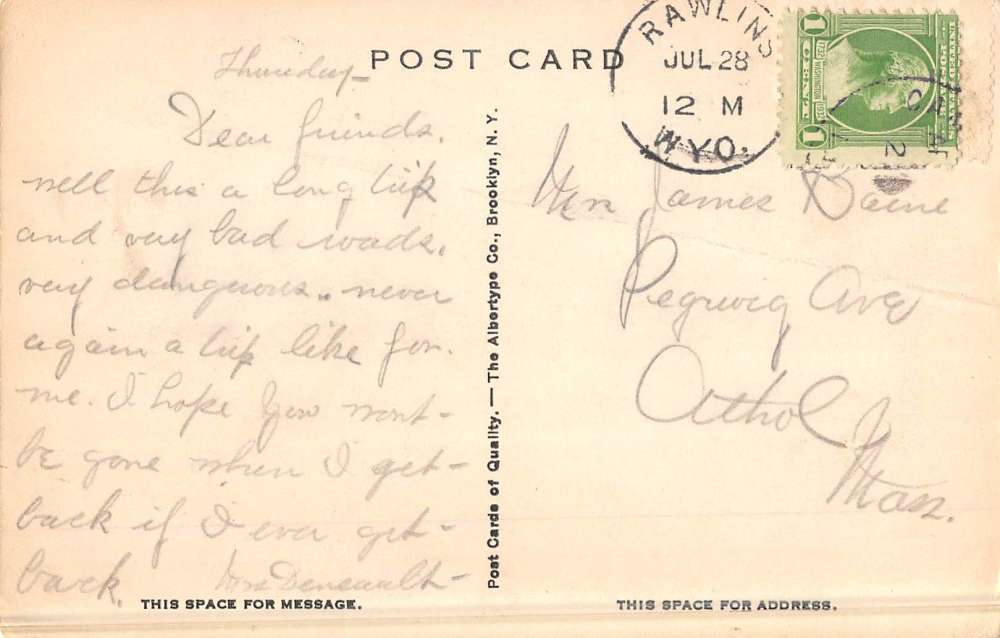 Thursday
POST CARD
RAWLINS
JUL 28
12 M
WYO.
1
1
1732 WASHINGTON 1932
Dear friends.
well this a long trip
and very bad roads.
very dangerous.. never
again a trip like for.
me. I hope you wont
be gone when I get
back if I ever get
back. Mrs Deneault
Post Cards of Quality. — The Albertype Co., Brooklyn, N. Y.
James
Ave
Athol
Mass.
THIS SPACE FOR MESSAGE.
THIS SPACE FOR ADDRESS.